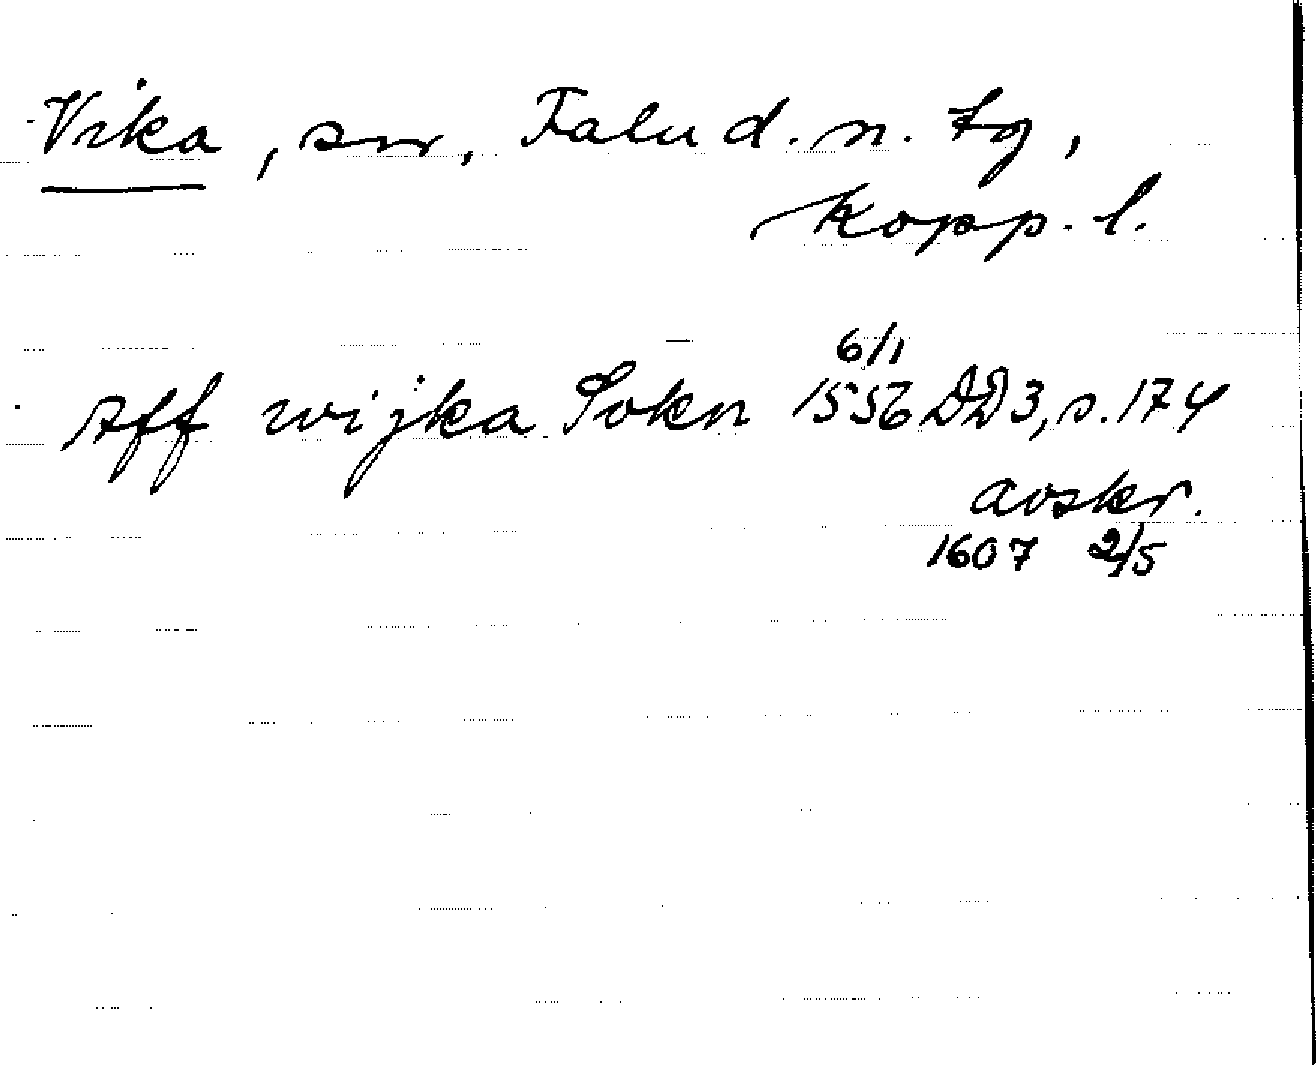 Vika, sn, Falu d. n. tg,
Kopp. l.
Aff wijka Sokn 1556 6/1 DD3, s. 174
avskr.
1607 2/5